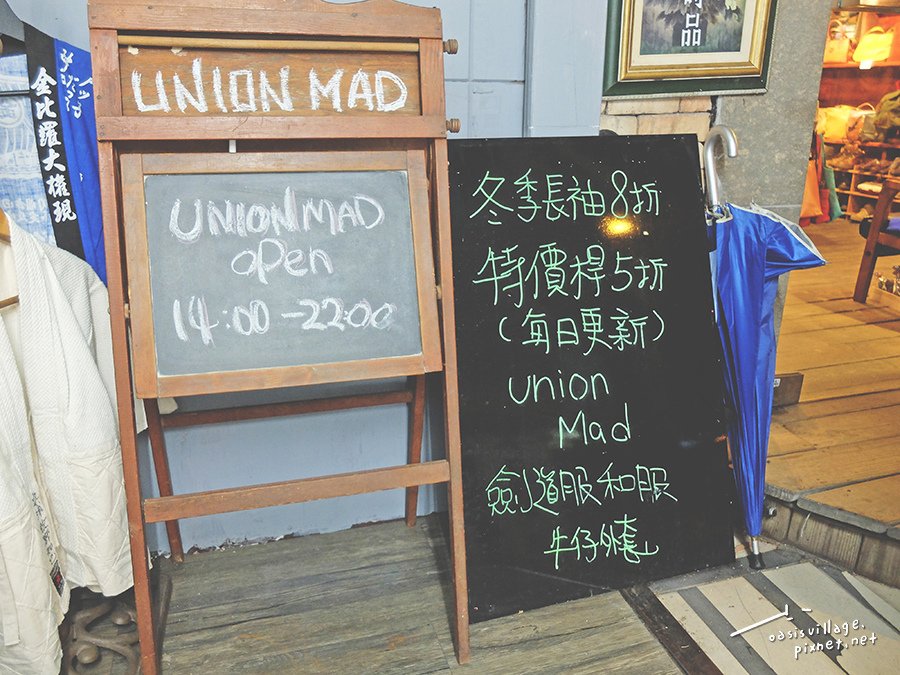 UNION MAD
UNION MAD
open
14:00 - 22:00
冬季長袖8折
特價桿5折
(每日更新)
union
Mad
劍道服和服
牛仔外套
金比羅大権現
品
oasisvillage.
pixnet.net